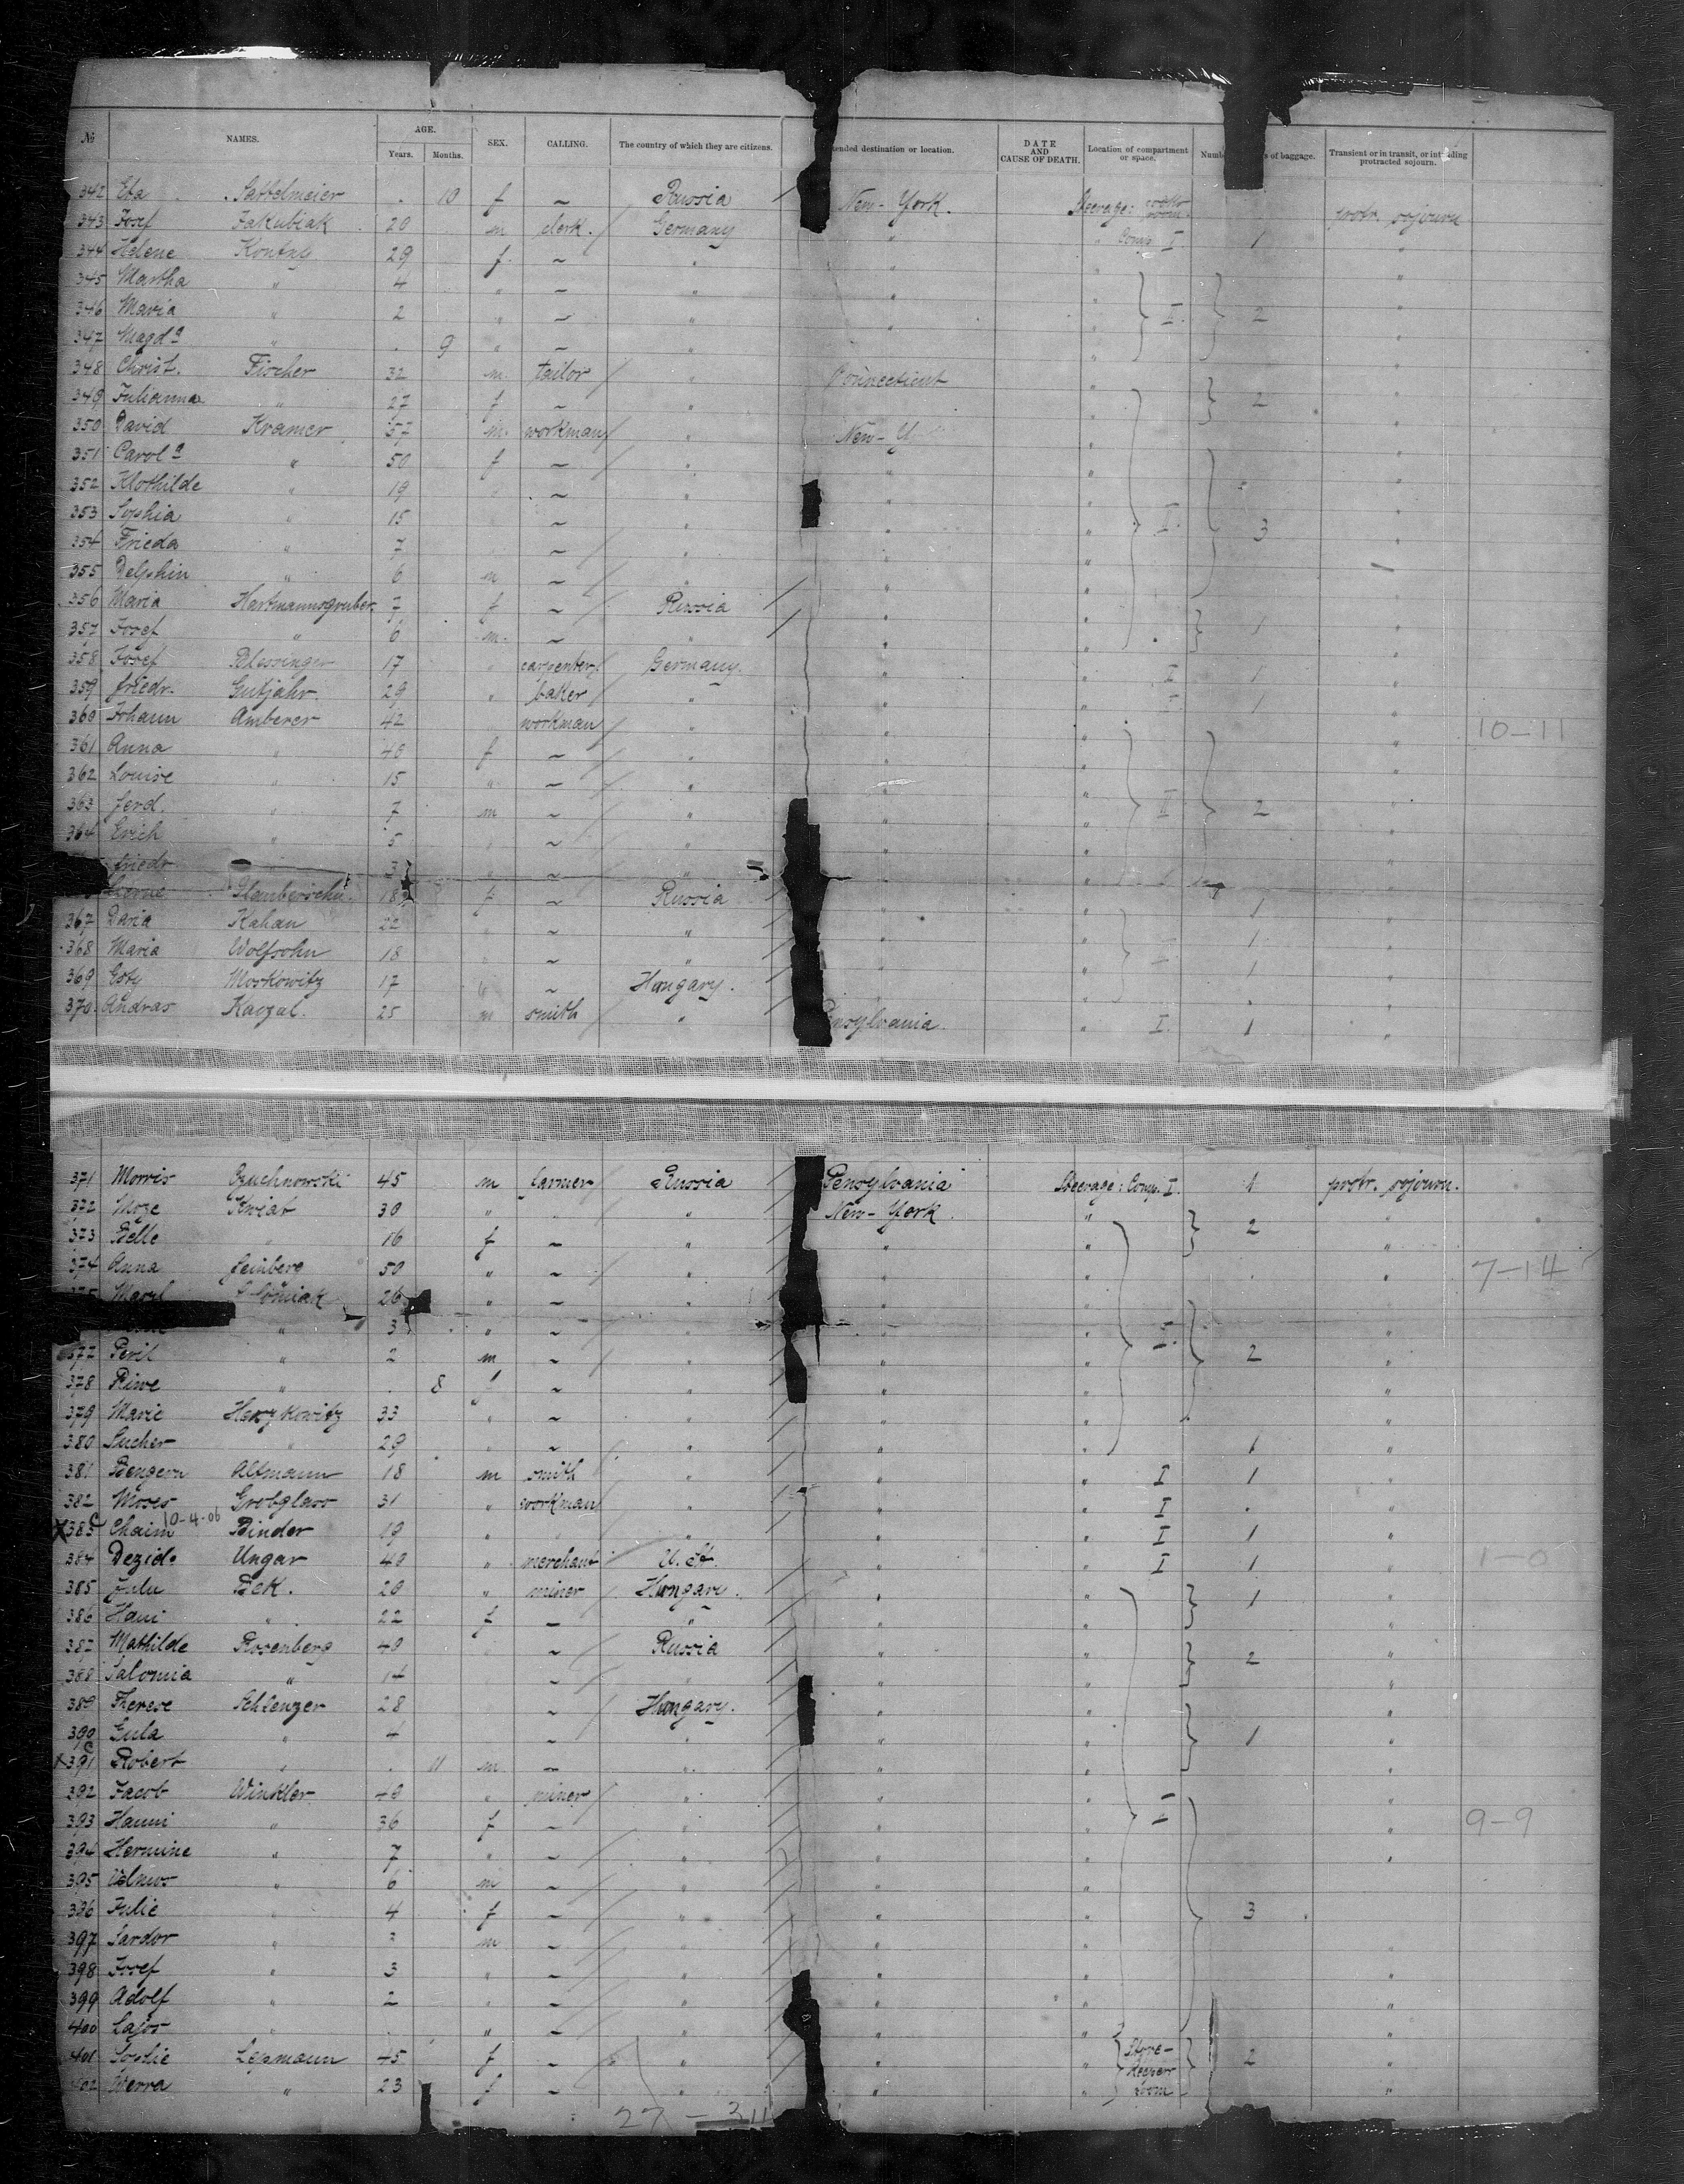 № NAMES. AGE. Years. Months. SEX. CALLING. The country of which they are citizens. ended destination or location. DATE AND CAUSE OF DEATH. Location of compartment or space. Numb s of baggage. Transient or in transit, or intending protracted sojourn.
342 Eba Sattelmeier . 10 f ~ Russia New-York. Steerage: room protr. sojourn
343 Josef Jakubiak 20 m clerk. Germany " " Comp I 1 "
344 Helene Kontny 29 f. ~ " " " "
345 Martha " 4 " ~ " " " "
346 Maria " 2 " ~ " " " II. 2 "
347 Magdª " . 9 " ~ " " "
348 Christ. Fischer 32 m. tailor " Connecticut " "
349 Julianna " 27 f ~ " " 2 "
350 David Kramer 57 m. workman " New-Y " "
351 Carolª " 50 f ~ " " " "
352 Klothilde " 19 ~ " " " "
353 Sophia " 15 ~ " " " I. 3 "
354 Frieda " 7 ~ " " " "
355 Delphin " 6 m ~ " " "
356 Maria Hartmannsgruber 7 f ~ Russia " " "
357 Josef " 6 m. ~ " " " 1 "
358 Josef Blessinger 17 " carpenter Germany. " " I 1 "
359 Friedr. Gutjahr 29 " baker " " " I 1 "
360 Johann Amberer 42 workman " " " " 10-11
361 Anna " 40 f ~ " " "
362 Louise " 15 " ~ " " " "
363 Ferd. " 7 m ~ " " " II 2 "
364 Erich " 5 ~ " " " "
Friedr " 3 " ~ " "
18 f ~ Russia " 1 "
367 Kahan 22 ~ " " " 1 "
368 Maria Wolfsohn 18 ~ " " " 1 "
369 Esty Moskowitz 17 " ~ Hungary. " " "
370. Andras 25 m smith " nsylvania. " I. 1 "
371 Morris Czuchnowski 45 m farmer Russia Pensylvania Steerage: Comp. I. 1 protr. sojourn.
372 Moze Kwiat 30 " " " New-York. " 2 "
373 Belle " 16 f ~ " " " "
374 Anna Feinberg 50 " ~ " " " " 7-14
26 " ~ " " "
" 3 " ~ " " " I. "
377 Peril " 2 m ~ " " " 2 "
378 Riwe " . 8 f ~ " " " "
379 Marie Herzkowitz 33 " ~ " " " "
380 Sucher " 29 " ~ " " " 1 "
381 Altmann 18 m smith " " " I 1 "
382 Moses Grobglass 31 " workman " " " I "
X383 C Chaim 10-4-06 Binder 19 " " " " " I 1 "
384 Dezid. Ungar 40 " merchant U. St. " " I 1 " 1-0
385 Julu Bek. 20 " miner Hungary. " " 1 "
386 Hani " 22 f ~ " " " "
387 Mathilde Rosenberg 40 " ~ Russia " " 2 "
388 Salomia " 14 ~ " " " "
389 Therese Schlenzer 28 ~ Hungary. " " "
390 Gula " 4 ~ " " " 1 "
X391 C Robert " . 11 m ~ " " " "
392 Jacob Winkler 40 " miner " " " I "
393 Hanni " 36 f ~ " " " " 9-9
394 Hermine " 7 " ~ " " " "
395 " 6 m ~ " " "
396 Julie " 4 f ~ " " " 3
397 Sandor " 3 m ~ " " "
398 Josef " 3 " ~ " " " "
399 Adolf " 2 " ~ " " " "
400 Lajos " " ~ " " " "
401 Sophie Lepmann 45 f ~ " " " Store-keeper room 2 "
402 Werra " 23 f ~ " " " "
27